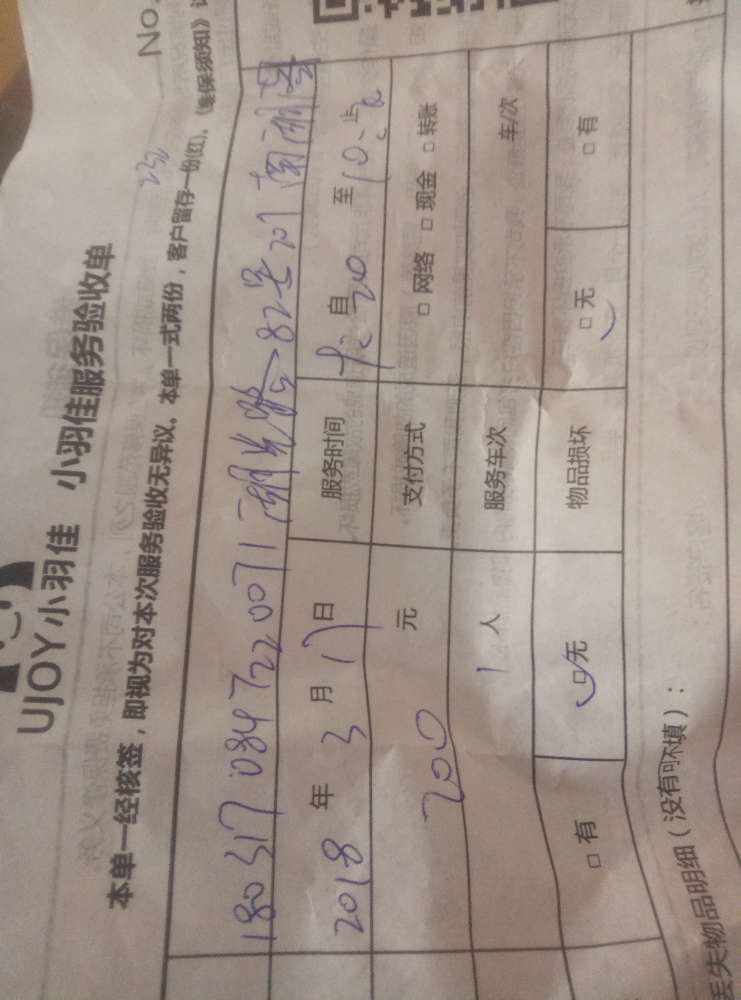 No.
UJOY小羽佳 小羽佳服务验收单
本单一经核签，即视为对本次服务验收无异议。本单一式两份，客户留存一份(红)。《维保须知》
1803170847220071
2018 年 3 月 17 日 服务时间 自 20 至 10:
200 元 支付方式 □ 网络 □ 现金 □ 转账
1 人 服务车次 车/次
□ 有 □ 无 物品损坏 □ 无 □ 有
丢失物品明细（没有可不填）：